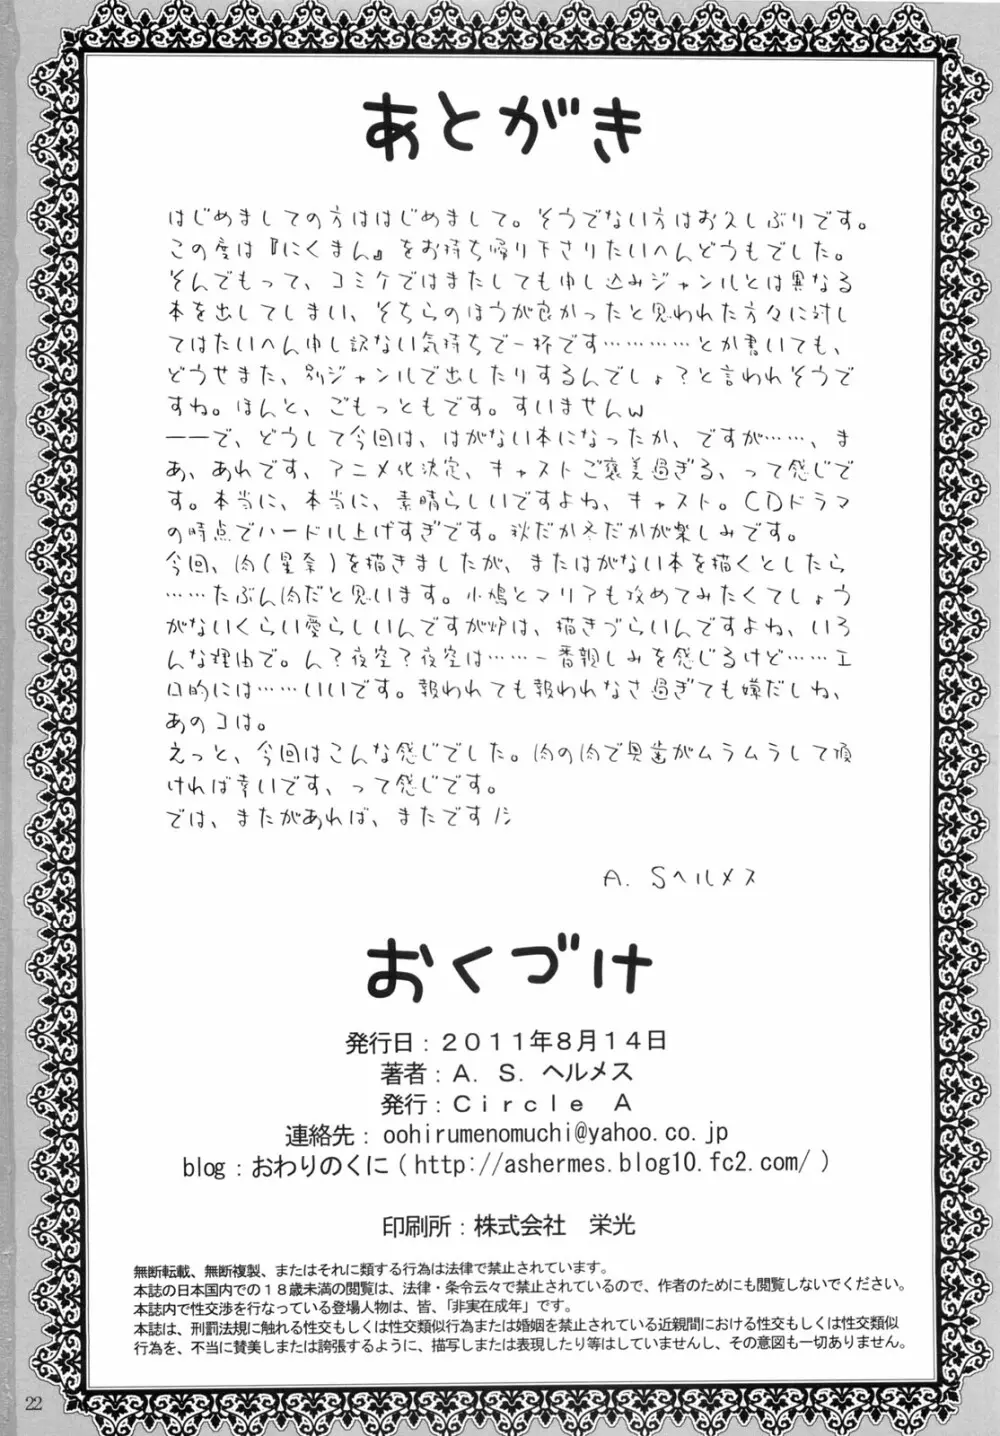 あとがき
はじめましての方ははじめまして。そうでない方はお久しぶりです。
この度は『にくまん』をお持ち帰り下さりたいへんどうもでした。
そんでもって、コミケではまたしても申し込みジャンルとは異なる
本を出してしまい、そちらのほうが良かったと思われた方々に対し
てはたいへん申し訳ない気持ちで一杯です…………とか書いても、
どうせまた、別ジャンルで出したりするんでしょ？と言われそうで
すね。ほんと、ごもっともです。すいませんw
――で、どうして今回は、はがない本になったか、ですが……、ま
あ、あれです、アニメ化決定、キャストご褒美過ぎる、って感じで
す。本当に、本当に、素晴らしいですよね、キャスト。CDドラマ
の時点でハードル上げすぎです。秋だか冬だかが楽しみです。
今回、肉(星奈)を描きましたが、またはがない本を描くとしたら
……たぶん肉だと思います。小鳩とマリアも攻めてみたくてしょう
がないくらい愛らしいんですが炉は、描きづらいんですよね、いろ
んな理由で。ん？夜空？夜空は……一番親しみを感じるけど……エ
ロ的には……いいです。報われても報われなさ過ぎても嫌だしね、
あのコは。
えっと、今回はこんな感じでした。肉の肉で奥歯がムラムラして頂
ければ幸いです、って感じです。
では、またがあれば、またですノシ
A. Sヘルメス
おくづけ
発行日：２０１１年８月１４日
著者：Ａ．Ｓ．ヘルメス
発行：Ｃｉｒｃｌｅ　Ａ
連絡先： oohirumenomuchi@yahoo.co.jp
blog：おわりのくに(http://ashermes.blog10.fc2.com/)
印刷所：株式会社　栄光
無断転載、無断複製、またはそれに類する行為は法律で禁止されています。
本誌の日本国内での１８歳未満の閲覧は、法律・条令云々で禁止されているので、作者のためにも閲覧しないでください。
本誌内で性交渉を行なっている登場人物は、皆、「非実在成年」です。
本誌は、刑罰法規に触れる性交もしくは性交類似行為または婚姻を禁止されている近親間における性交もしくは性交類似
行為を、不当に賛美しまたは誇張するように、描写しまたは表現したり等はしていませんし、その意図も一切ありません。
22